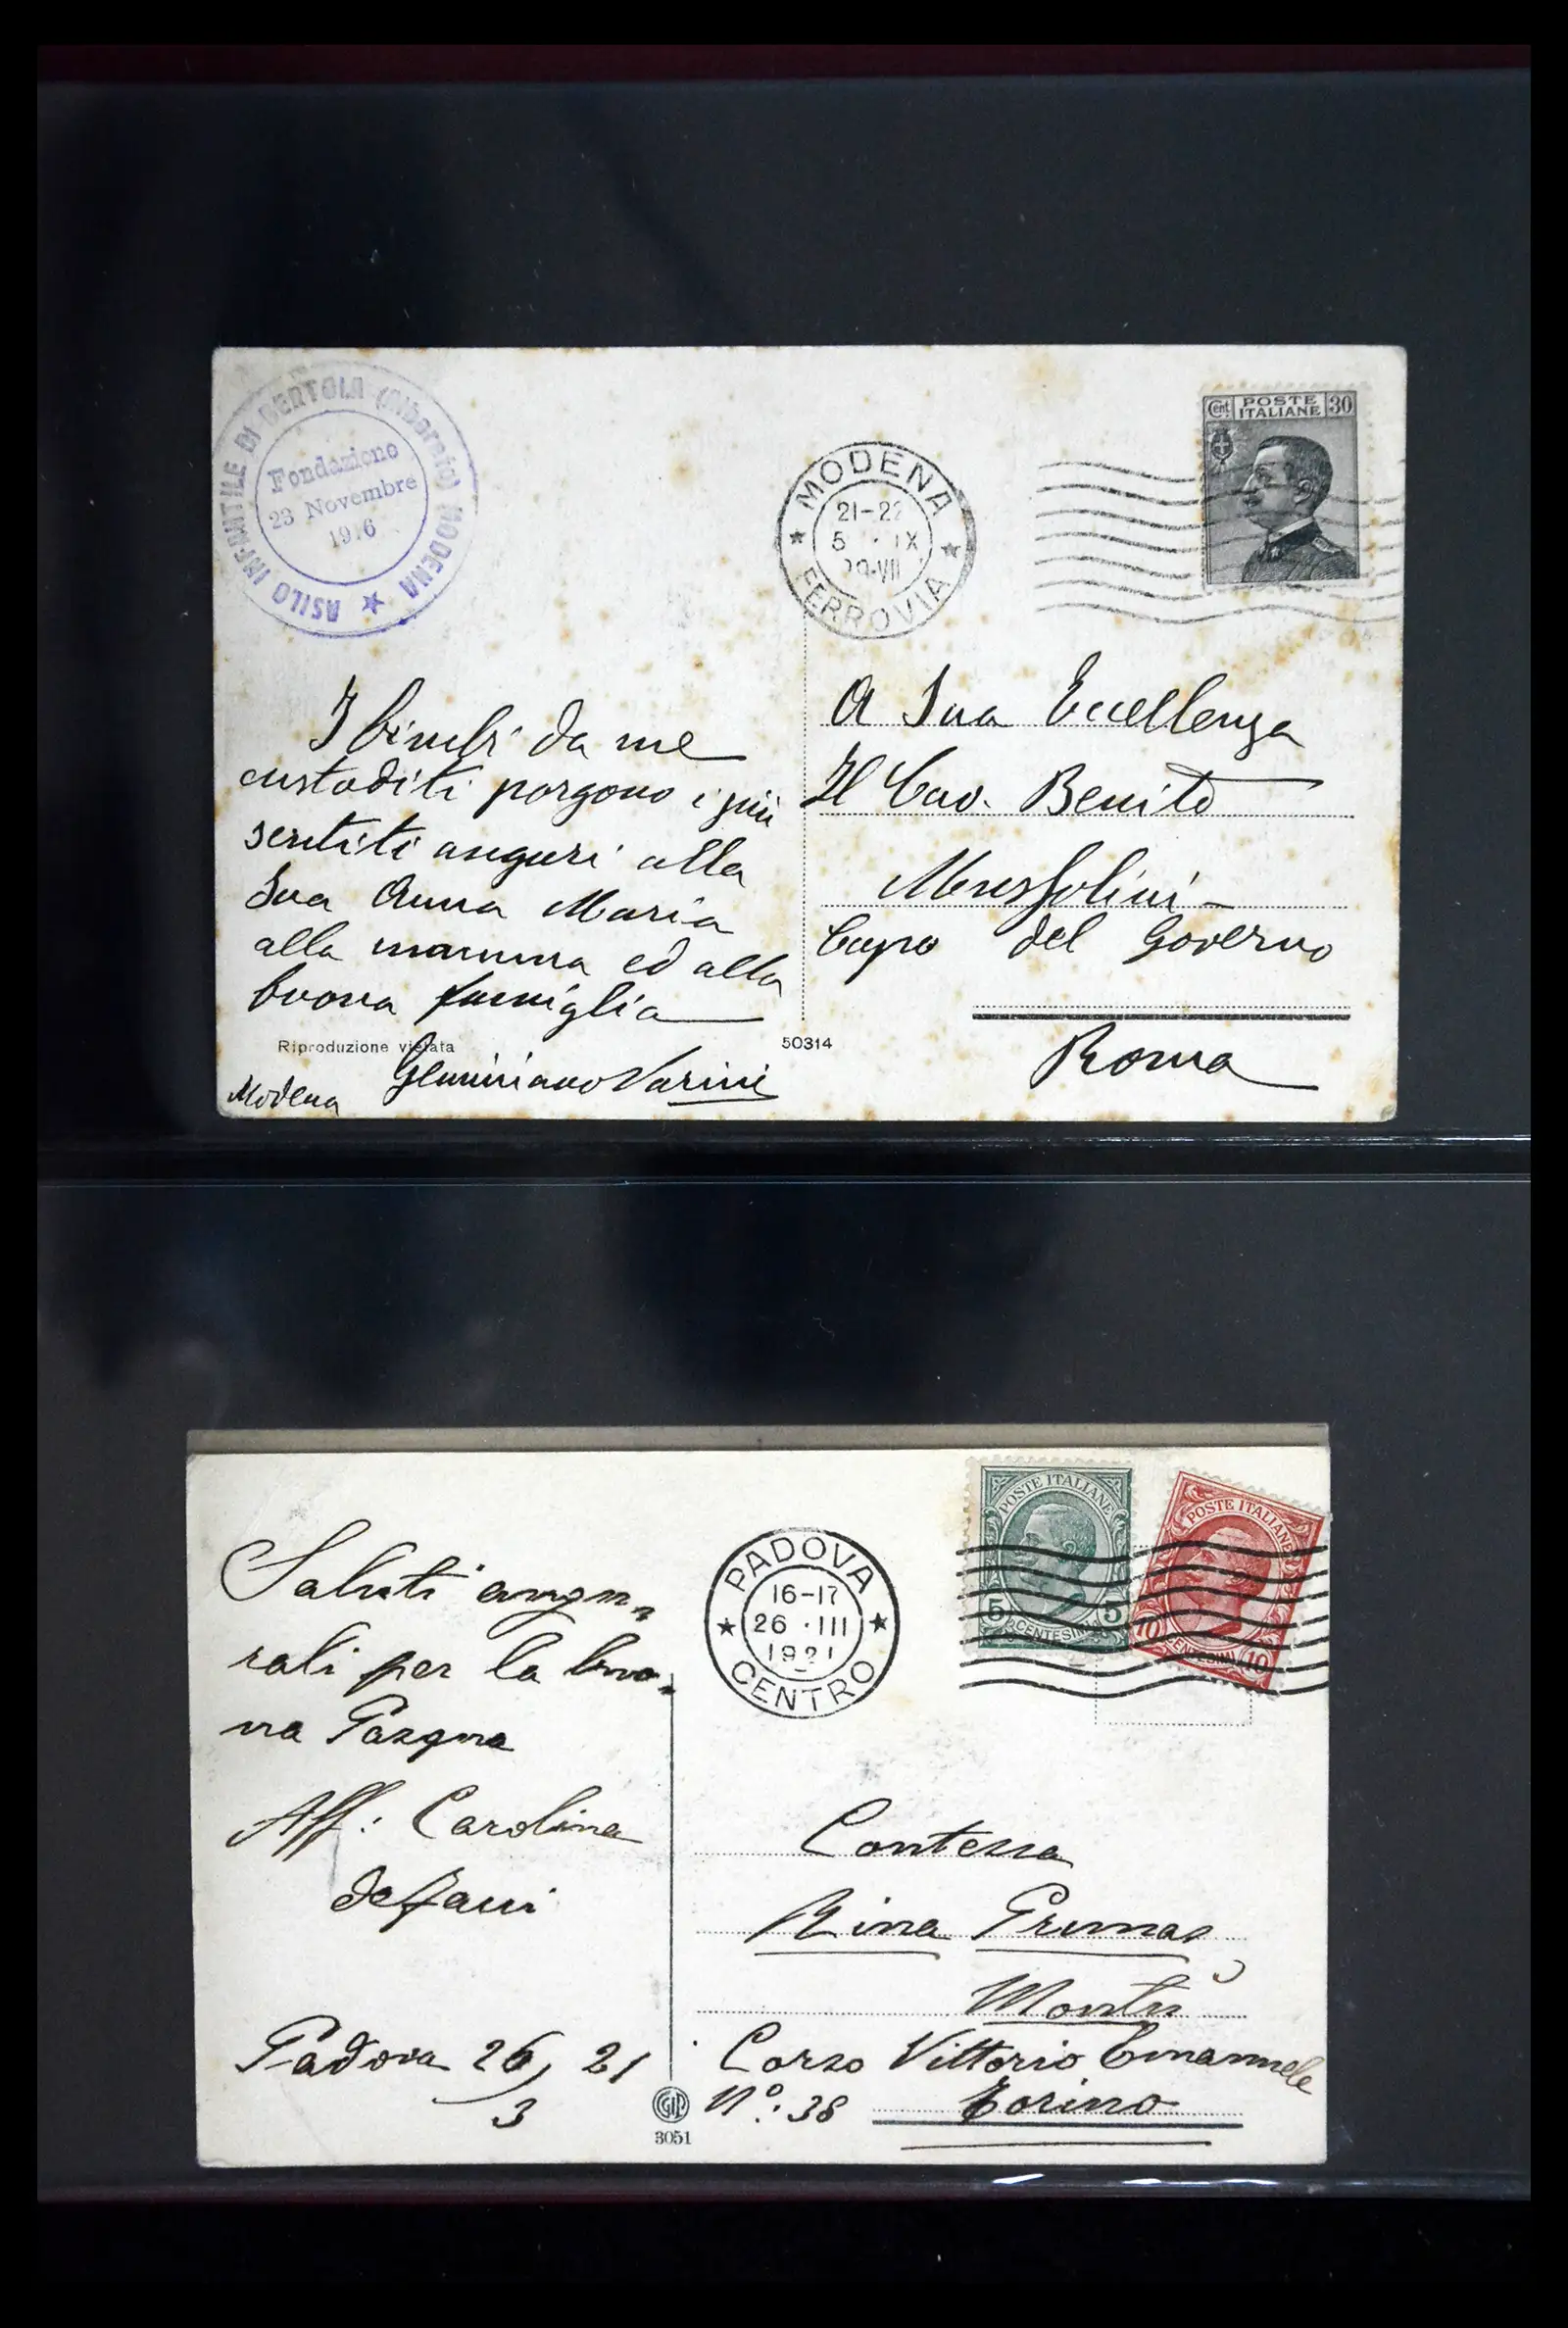 ASILO INFANTILE DI BERTOLA (Albareto) MODENA
Fondazione
23 Novembre
1916
MODENA
21-22
5 · IX
29-VII
FERROVIA
Cent. POSTE ITALIANE 30
I bimbi da me
custoditi porgono i più
sentiti auguri alla
Sua Anna Maria
alla mamma ed alla
buona famiglia
Riproduzione vietata
Geminiano Varini
Modena
50314
A Sua Eccellenza
Il Cav. Benito
Mussolini
Capo del Governo
Roma
PADOVA
16-17
26 · III
1921
CENTRO
POSTE ITALIANE
5 CENTESIMI 5
POSTE ITALIANE
10 CENTESIMI 10
Saluti augu-
rali per la buo-
na Pasqua
Aff: Carolina
Padova 26, 21
3
GIP
3051
Contessa
Rina Prunas
Montù
Corso Vittorio Emanuele
N°: 38 Torino